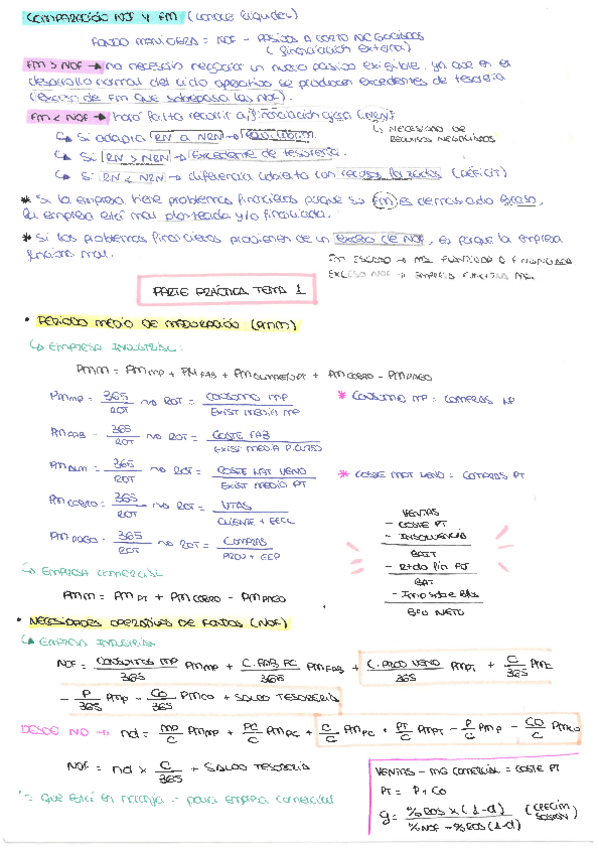 COMPARACIÓN NOF Y FM (conocer liquidez)
FONDO MANIOBRA = NOF - PASIVOS A CORTO NEGOCIADOS
(financiación externa)
FM > NOF → no necesario negociar un nuevo pasivo exigible, ya que en el
desarrollo normal del ciclo operativo se producen excedentes de tesorería
(exceso de FM que sobrepasa las NOF).
FM < NOF → hará falta recurrir a financiación ajena (NRN)
↳ NECESIDAD DE RECURSOS NEGOCIADOS
↳ Si adapta RN a NRN → equilibrio.
↳ Si RN > NRN → excedente de tesorería.
↳ Si RN < NRN → diferencia cubierta con recursos forzados (DÉFICIT)
* Si la empresa tiene problemas financieros porque su FM es demasiado escaso,
la empresa está mal planteada y/o financiada.
* Si los problemas financieros provienen de un exceso de NOF, es porque la empresa
funciona mal.
FM ESCASO → MAL PLANTEADA O FINANCIADA
EXCESO NOF → EMPRESA FUNCIONA MAL
PARTE PRÁCTICA TEMA 1
• PERIODO MEDIO DE MADURACIÓN (PMM)
↳ EMPRESA INDUSTRIAL:
PMM = PM MP + PM FAB + PM ALMACÉN PT + PM COBRO - PM PAGO
PM MP = 365/ROT → ROT = CONSUMO MP/EXIST MEDIA MP
* CONSUMO MP = COMPRAS MP
PM FAB = 365/ROT → ROT = COSTE FAB/EXIST MEDIA P.CURSO
PM ALM = 365/ROT → ROT = COSTE MAT VEND/EXIST MEDIO PT
* COSTE MAT VEND = COMPRAS PT
PM COBRO = 365/ROT → ROT = VTAS/CLIENTE + EECL
PM PAGO = 365/ROT → ROT = COMPRAS/PROV + EEP
VENTAS
- COSTE PT
- INSOLVENCIA
BAIT
- Rtdo fin AJ
BAT
- Impo sobre Bºs
BFO NETO
↳ EMPRESA COMERCIAL
PMM = PM PT + PM COBRO - PM PAGO
• NECESIDADES OPERATIVAS DE FONDOS (NOF)
↳ EMPRESA INDUSTRIAL
NOF = CONSUMOS MP/365 PM MP + C.FAB PC/365 PM FAB + C.PROD VEND/365 PM PT + C/365 PM C
- P/365 PM P - CO/365 PM CO + SALDO TESORERÍA
DESDE ND → nd = MP/C PM MP + PC/C PM PC + C/C PM PC + PT/C PM PT - P/C PM P - CO/C PM CO
NOF = nd x C/365 + SALDO TESORERÍA
VENTAS - MG COMERCIAL = COSTE PT
PT = P + CO
g = %BDS x (1-d)/%NOF - %BDS (1-d) (CRECIM. SOSTEN)
Que está en naranja - para empresa comercial